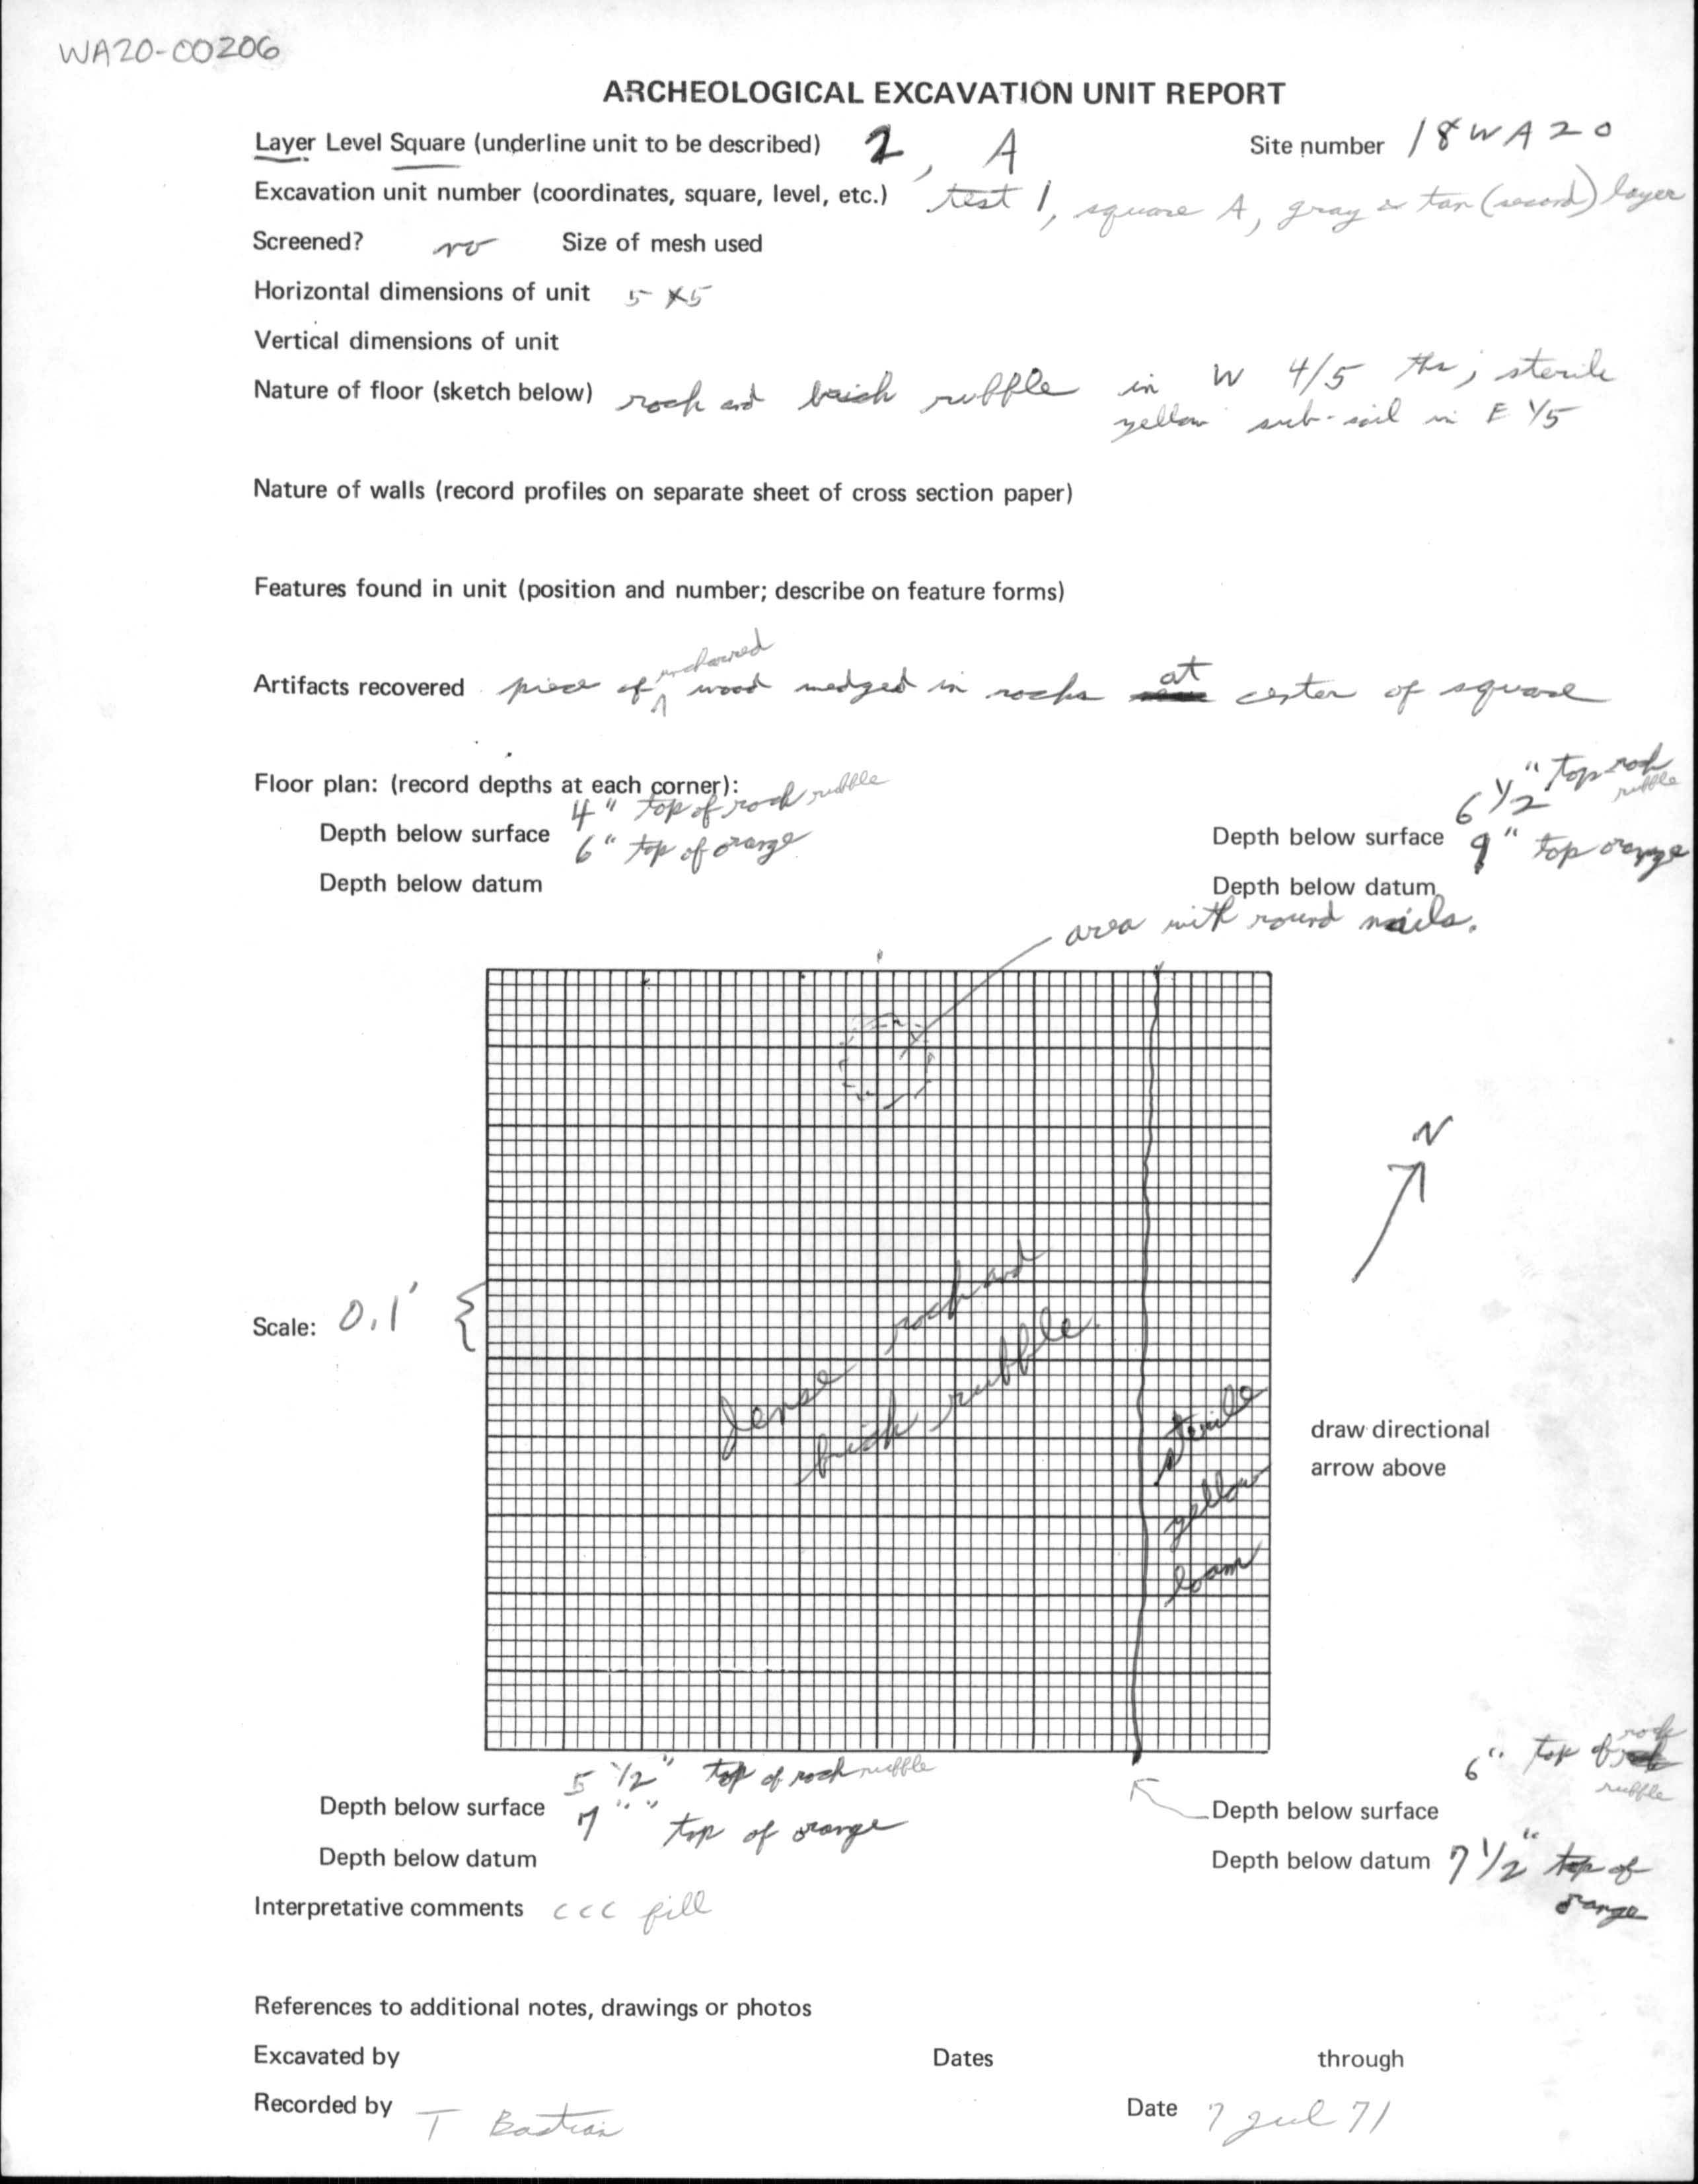 WA20-00206
ARCHEOLOGICAL EXCAVATION UNIT REPORT
Layer Level Square (underline unit to be described) 2, A Site number 18WA20
Excavation unit number (coordinates, square, level, etc.) test 1, square A, gray & tan (second) layer
Screened? no Size of mesh used
Horizontal dimensions of unit 5 x 5
Vertical dimensions of unit
Nature of floor (sketch below) rock and brick rubble in W 4/5 ths; sterile
yellow sub-soil in E 1/5
Nature of walls (record profiles on separate sheet of cross section paper)
Features found in unit (position and number; describe on feature forms)
uncharred
Artifacts recovered piece of wood wedged in rocks at center of square
Floor plan: (record depths at each corner):
4" top of rock rubble
6 1/2" top rock rubble
Depth below surface 6" top of orange
Depth below surface 9" top orange
Depth below datum
Depth below datum
area with round nails.
N
Dense rock and
brick rubble.
Scale: 0.1'
sterile
yellow
loam
draw directional
arrow above
5 1/2" top of rock rubble
6" top of rock rubble
Depth below surface 7" top of orange
Depth below surface
Depth below datum
Depth below datum 7 1/2" top of
orange
Interpretative comments CCC fill
References to additional notes, drawings or photos
Excavated by Dates through
Recorded by T Bastian Date 7 Jul 71